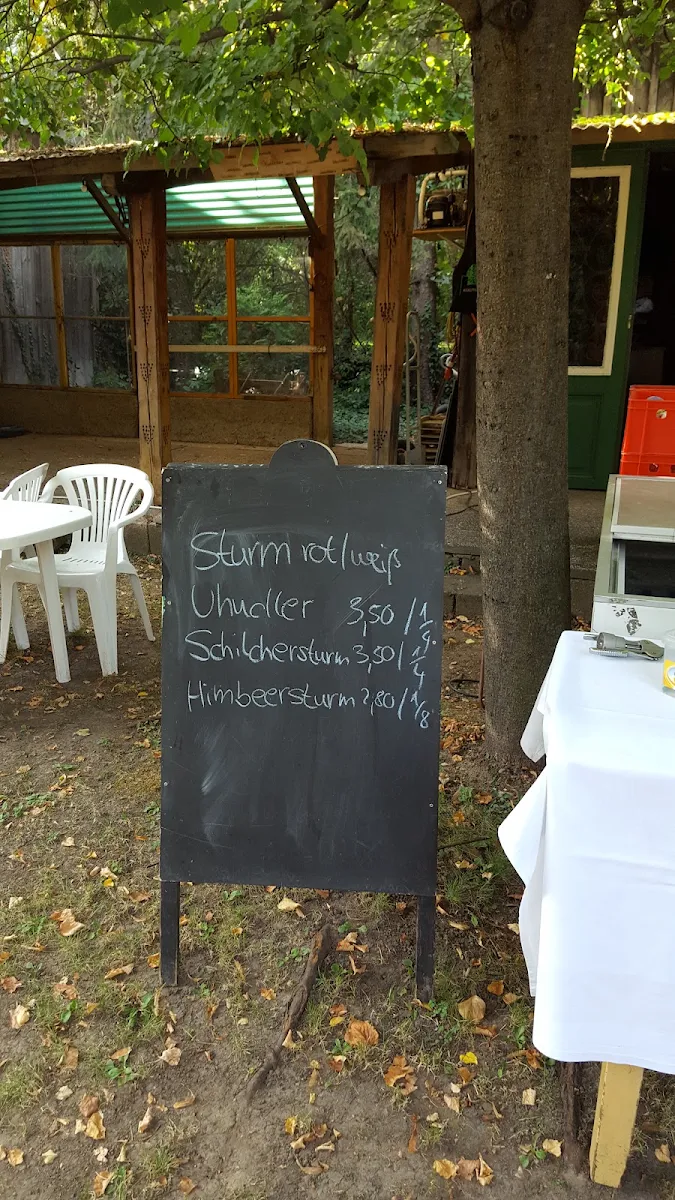 Sturm rot/weiß
Uhudler 3,50/1/4
Schilchersturm 3,50/1/4
Himbeersturm 2,80/1/8